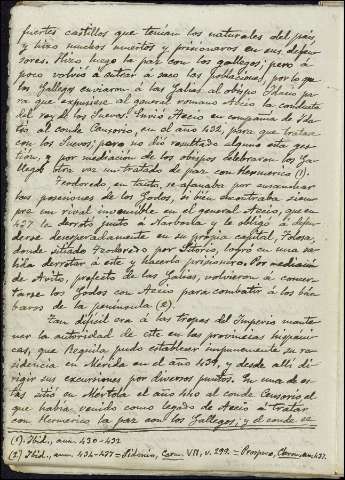 fuertes castillos que tenían los naturales del país
y hizo muchos muertos y prisioneros en sus defen-
sores. Hizo luego la paz con los gallegos; pero á
poco volvió á entrar á saco las poblaciones, por lo que
los Gallegos enviaron á las Galias al obispo Idacio pa-
ra que expusiese al general romano Aecio la conducta
del rey de los Suevos. Envió Aecio en compañía de Ida-
cio al conde Censorio, en el año 432, para que tratara
con los Suevos; pero no dió resultado alguno esta ges-
tion, y por mediacion de los obispos celebraron los Ga-
llegos otra vez un tratado de paz con Hermerico (1).
Teodoredo, en tanto, se afanaba por ensanchar
las posesiones de los Godos, si bien encontraba siem-
pre un rival invencible en el general Aecio, que en
437 le derrotó junto a Narbona y le obligó á defen-
derse desesperadamente en su propia capital, Tolosa,
donde sitiado Teodoredo por Litorio, logró en una sa-
lida derrotar á este y hacerlo prisionero. Por mediacion
de Avito, prefecto de las Galias, volvieron á concer-
tarse los Godos con Aecio para combatir á los bár-
baros de la península (2).
Tan dificil era á las tropas del Imperio mante-
ner la autoridad de este en las provincias hispáni-
cas, que Requila pudo establecer impunemente su re-
sidencia en Mérida en el año 439, y desde allí di-
rigir sus excursiones por diversos puntos. En una de es-
tas sitió en Mértola el año 440 al conde Censorio, el
que había venido como legado de Aecio á tratar
con Hermerico la paz con los Gallegos; y el conde se
(1). Ibid., ann. 430-432
(2) Ibid., ann. 434-437 = Sidonio, Carm. VII, v. 299. = Prospero, Chron. an. 437.